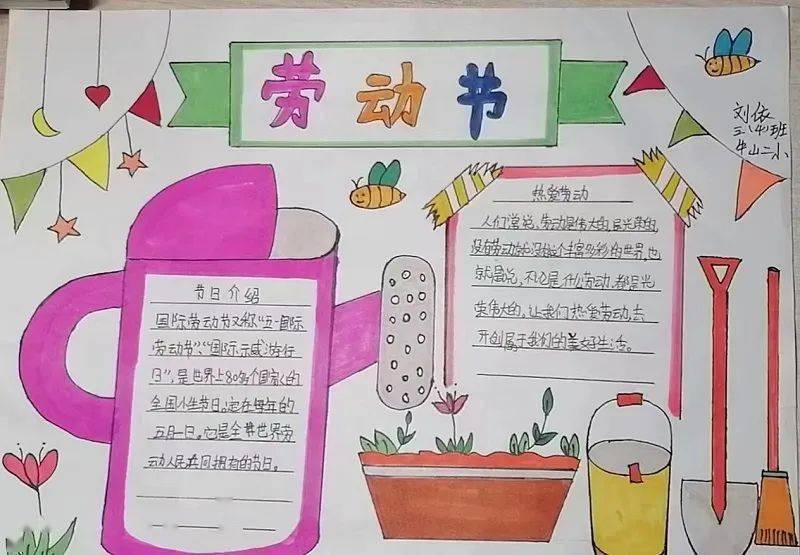 劳动节
刘依
三(4)班
牛山二小
节日介绍
国际劳动节又称“五一国际
劳动节”、“国际示威游行
日”,是世界上80多个国家的
全国性节日。定在每年的
五月一日。它是全世界劳
动人民共同拥有的节日。
热爱劳动
人们常说,劳动是伟大的,是光荣的,
没有劳动就没有这个丰富多彩的世界。也
就是说,不论是什么劳动,都是光
荣伟大的,让我们热爱劳动,去
开创属于我们的美好生活。